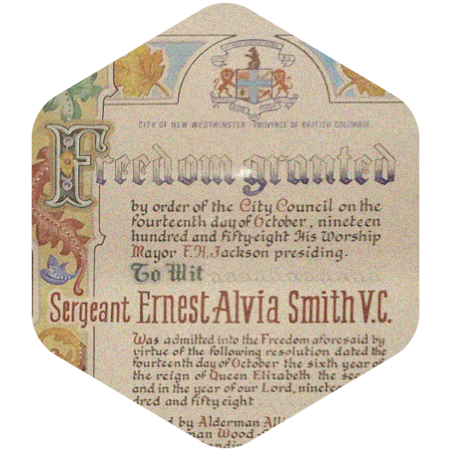 CITY OF NEW WESTMINSTER - PROVINCE OF BRITISH COLUMBIA
Freedom granted
by order of the City Council on the
fourteenth day of October, nineteen
hundred and fifty-eight His Worship
Mayor F.H. Jackson presiding.
To Wit
Sergeant Ernest Alvia Smith V.C.
Was admitted into the Freedom aforesaid by
virtue of the following resolution dated the
fourteenth day of October the sixth year of
the reign of Queen Elizabeth the
and in the year of our Lord,
dred and fifty eight
by Alderman
Wood